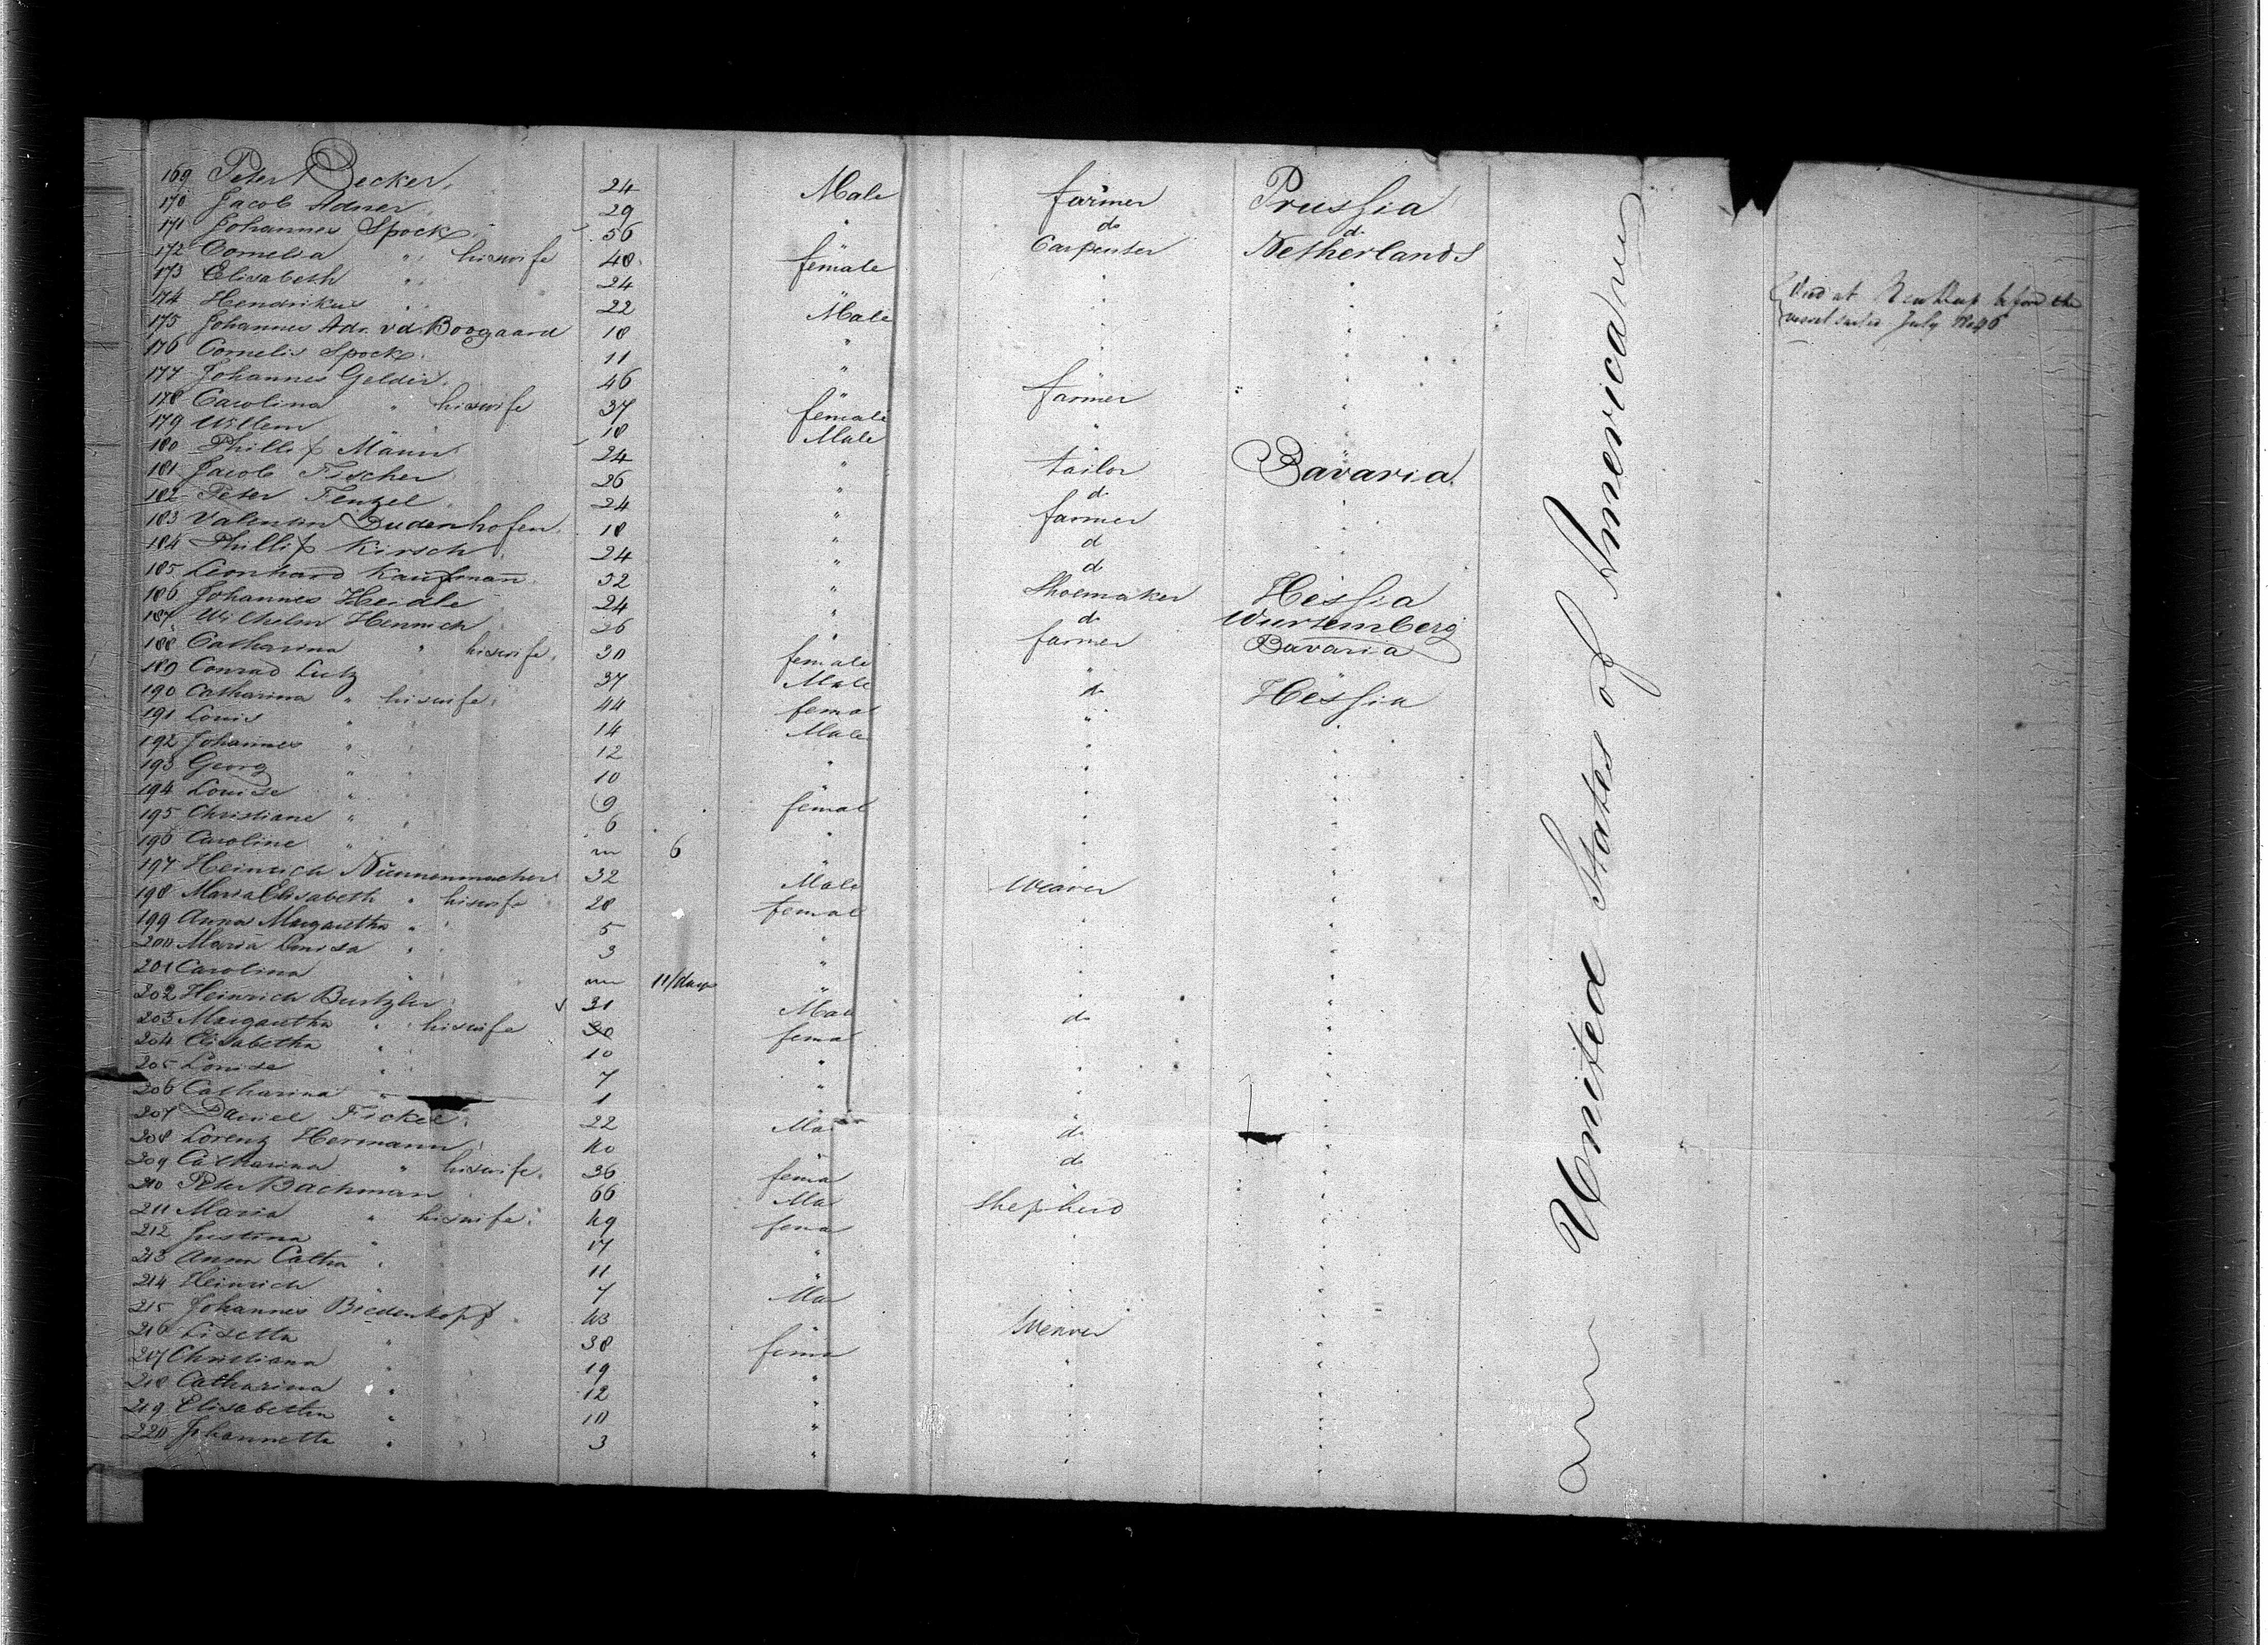 169 Peter Becker. 24 Male farmer Prussia
170 Jacob Adner. 29 " do d.
171 Johannes Spock. 56 Carpenter Netherlands
172 Cornelia " his wife 48 female
173 Elisabeth " 24 "
174 Hendrikus " 22 Male
175 Johannes Adr. vd Boogaard 18 "
176 Cornelis Spock. 11 "
177 Johannes Gelder. 46 " farmer "
178 Carolina " his wife 37 female
179 Willem " 18 Male "
180 Phillip Mann 24 " tailor Bavaria.
181 Jacob Fischer 26 " d.
182 Peter Fenzel. 24 " farmer
183 Valentin Dudenhofen. 18 " d
184 Phillip Kirsch. 24 " d.
185 Leonhard Kaufmann. 32 " Shoemaker Hessia
186 Johannes Heidle 24 " d. Wurtemberg
187 Wilhelm Hennrich 26 " farmer Bavaria
188 Catharina " his wife. 30 female "
189 Conrad Lutz 37 Male d. Hessia
190 Catharina " his wife. 44 femal "
191 Louis " 14 Male "
192 Johannes " 12 "
193 Georg " 10 "
194 Louise " 9 femal
195 Christiane " 6 "
196 Caroline " 6 "
197 Heinrich Nunnenmacher 32 Male Weaver
198 Maria Elisabeth " his wife 28 femal
199 Anna Margaretha " 5 "
200 Maria Louisa " 3 "
201 Carolina " 11/days "
202 Heinrich 31 Mal do
203 Margaretha " his wife 30 femal
204 Elisabetha " 10 "
205 Louise " 7 "
206 Catharina " 1 "
207 Daniel Fickel. 22 Mal d.
208 Lorenz Hermann. 40 " d.
209 Catharina " his wife. 36 femal
210 Peter Bachman 66 Mal Shepherd
211 Maria " his wife. 49 femal
212 Justina " 17 "
213 Anna Catha " 11 "
214 Heinrich " 7 Mal
215 Johannes Biedenkopf 43 " Weaver
216 Lisetta " 38 femal
217 Christiana " 19 "
218 Catharina " 12 "
219 Elisabetha " 10 "
220 Johannetta " 3 "
United States of America
Died at before the
vessel sailed July 1846